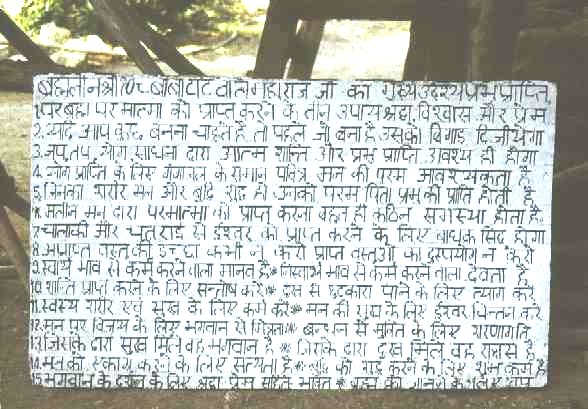 ब्रह्मलीन श्री 108 बाबा टाट वाला महाराज जी का मुख्य उद्देश्य प्रभु प्राप्ति
1. पर ब्रह्म परमात्मा को प्राप्त करने के तीन उपाय श्रद्धा, विश्वास और प्रेम
2. यदि आप कुछ बनना चाहते हैं तो पहले जो बना है उसको बिगाड़ दिजीयेगा
3. जप, तप, योग, साधना द्वारा आत्म शान्ति और प्रभु प्राप्ति अवश्य ही होगी
4. योग प्राप्ति के लिए गंगाजल के समान पवित्र मन की परम आवश्यकता है
5. जिनका शरीर मन और बुद्धि शुद्ध हो उनको परम पिता प्रभु की प्राप्ति होती है
6. मलीन मन द्वारा परमात्मा को प्राप्त करना बहुत ही कठिन समस्या होता है
7. चालाकी और चतुराई से ईश्वर को प्राप्त करने के लिए बाधक सिद्ध होगा
8. अप्राप्त वस्तु की इच्छा कभी न करो प्राप्त वस्तुओ का दुरुपयोग न करो
9. स्वार्थ भाव से कर्म करने वाला मानव है * निस्वार्थ भाव से कर्म करने वाला देवता है
10. शान्ति प्राप्त करने के लिए सन्तोष करें * दुख से छुटकारा पाने के लिए त्याग करें
11. स्वस्थ शरीर एवं सुख के लिए कर्म करें * मन की सुख के लिए ईश्वर चिन्तन करें
12. मन पर विजय के लिए भगवान से मित्रता * बन्धन से मुक्ति के लिए शरणागति
13. जिसके द्वारा सुख मिले वह भगवान है * जिसके द्वारा दुख मिले वह राक्षस है
14. मन को एकाग्र करने के लिए सत्यता है * बुद्धि को शुद्ध करने के लिए शुभ कर्म है
15. भगवान के दर्शन के लिए श्रद्धा प्रेम सहित भक्ति * को जानने के लिए